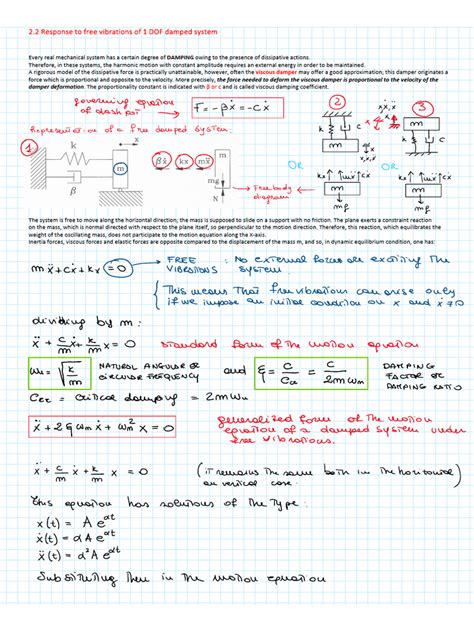 2.2 Response to free vibrations of 1 DOF damped system
Every real mechanical system has a certain degree of DAMPING owing to the presence of dissipative actions.
Therefore, in these systems, the harmonic motion with constant amplitude requires an external energy in order to be maintained.
A rigorous model of the dissipative force is practically unattainable, however, often the viscous damper may offer a good approximation, this damper originates a
force which is proportional and opposite to the velocity. More precisely, the force needed to deform the viscous damper is proportional to the velocity of the
damper deformation. The proportionality constant is indicated with β or c and is called viscous damping coefficient.
governing equation
of dash pot
F = -βẋ = -cẋ
Representation of a free damped system:
1
k
x
m
β
βẋ
kx
mẍ
m
mg
N
Free body
diagram
2
k
c
m
x,ẋ,ẍ
OR
kx
mẍ
cẋ
m
mg
3
ẍ,ẋ,x
m
k
c
OR
m
kx
cẋ
mg
The system is free to move along the horizontal direction; the mass is supposed to slide on a support with no friction. The plane exerts a constraint reaction
on the mass, which is normal directed with respect to the plane itself, so perpendicular to the motion direction. Therefore, this reaction, which equilibrates the
weight of the oscillating mass, does not participate to the motion equation along the x-axis.
Inertia forces, viscous forces and elastic forces are opposite compared to the displacement of the mass m, and so, in dynamic equilibrium condition, one has:
mẍ + cẋ + kx = 0
FREE VIBRATIONS : No external forces are exciting the system.
This means that free vibrations can arise only
if we impose an initial condition on x and ẋ ≠ 0
dividing by m:
ẍ + c/m ẋ + k/m x = 0 standard form of the motion equation
ωn = √(k/m) NATURAL ANGULAR OR CIRCULAR FREQUENCY and ξ = c/Ccr = c/2mωn DAMPING FACTOR OR DAMPING RATIO
Ccr = critical damping = 2mωn
ẍ + 2ξωnẋ + ωn² x = 0
generalized form of the motion
equation of a damped system under
free vibrations.
ẍ + c/m ẋ + k/m x = 0 (it remains the same both in the horizontal
or vertical case.)
This equation has solutions of the type:
x(t) = A e^αt
ẋ(t) = αA e^αt
ẍ(t) = α²A e^αt
Substituting them in the motion equation